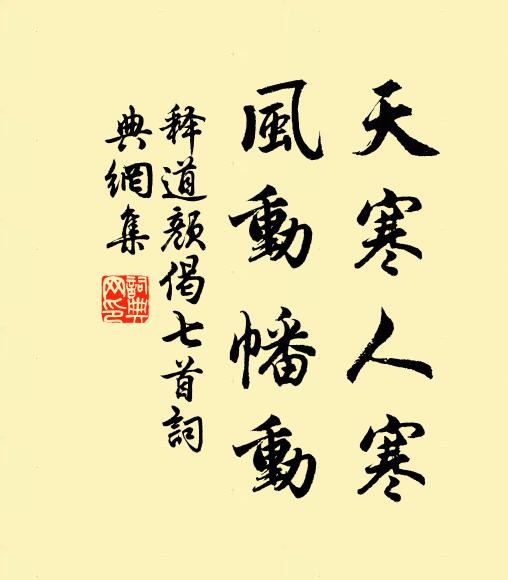 天寒人寒
風動幡動
釋道顏偈七首詞
典網集
詞典网印